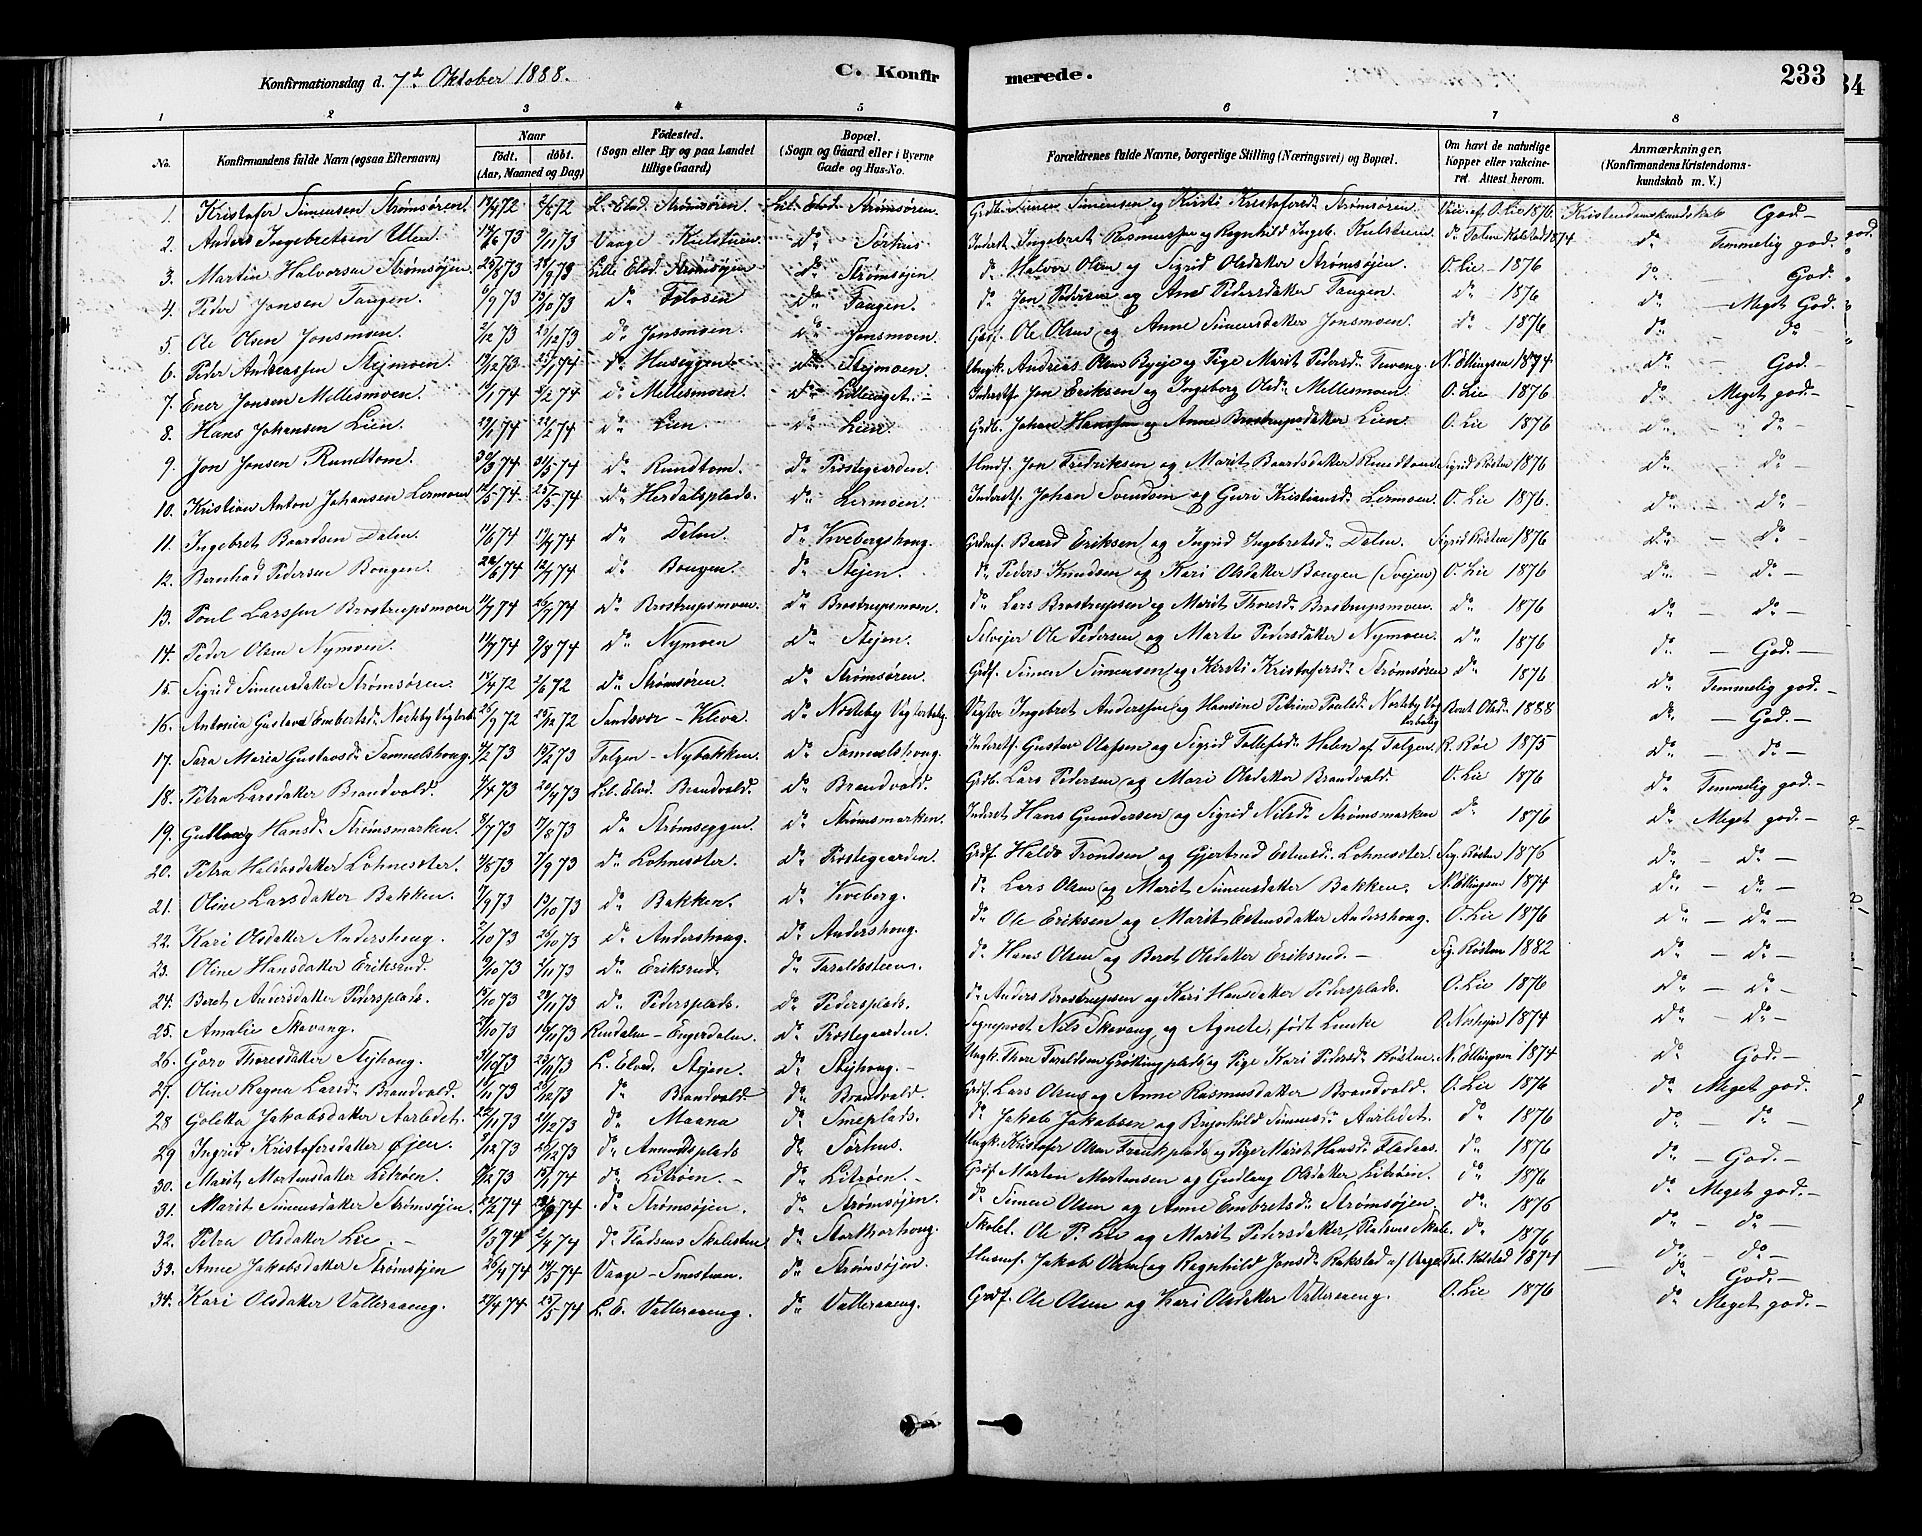 Konfirmationsdag d. 7de Oktober 1888.
C. Konfirmerede.
233
34
1 2 3 4 5 6 7 8
No. Konfirmandens fulde Navn (ogsaa Efternavn) Naar født. døbt. (Aar, Maaned og Dag) Fødested. (Sogn eller By og paa Landet tillige Gaard) Bopæl. (Sogn og Gaard eller i Byerne Gade og Hus-No. Forældrenes fulde Navne, borgerlige Stilling (Næringsvei) og Bopæl. Om havt de naturlige Kopper eller vakcineret. Attest herom. Anmærkninger, (Konfirmandens Kristendomskundskab m. V.)
1. Kristofer Simensen Strømsøren. 2/6 72 L. Elvd. Strømsøren. Lil. Elvd. Strømsøren. Grdb. Simen Simensen og Kirsti Kristofersd. Strømsøren. O. Lie 1876. Kristendomskundskab God —
2. Anders Ingebretsen Ulen. 2/11 73 Vaage Kulstuen. do Sørhus Inderst. Ingebret Rasmussen og Ragnhild Ingeb. Kulstuen. Kolstad 1874 do Temmelig god.
3. Martin Halvorsen Strømsøjen. 25/8 73 28/9 73 Lille Elvd. Strømsøjen do Strømsøjen. do Halvor Olsen og Sigrid Olsdatter Strømsøjen. O. Lie — 1876 do God.
4. Peder Jonsen Tangen. 6/9 73 do do Tangen. do Jon Pedersen og Ane Pedersdatter Tangen. do 1876 do — Meget God.
5. Ole Olsen Jonsmoen. 2/12 73 do Jonsmoen. do Jonsmoen. Grdf. Ole Olsen og Anne Simensdatter Jonsmoen. do 1876 do do
6. Peder Andreassen Stejmoen. do Huseggen. do Stejmoen. Ungk. Andreas Olsen og Pige Marit Pedersd. N. Ellingsen 1874 do God.
7. Ener Jonsen Mellesmoen. 2/2 74 do Mellesmoen. do Inderstf. Jon Eriksen og Ingeborg Olsd. Mellesmoen. O. Lie 1876 do Meget god.
8. Hans Johansen Lien. 22/2 74 do Lien do Lien Grdb. Johan Hanssen og Anne Brostrupsdatter Lien. O. Lie 1876 do — do —
9. Jon Jonsen Rundtom. 30/3 74 31/5 74 do Rundtom. do Præstegaarden. Husf. Jon Fredriksen og Marit Baardsdatter Rundtom Sigrid Røsten 1876 do — do
10. Kristian Anton Johansen Lermoen 25/5 74 do Herdalsplads. do Lermoen. Inderstf. Johan Svendsen og Guri Kristiansd. Lermoen. O. Lie 1876. do — do
11. Ingebret Baardsen Dalen. 11/6 74 do Dalen do Kvebergshoug. Grdmf. Baard Eriksen og Ingrid Ingebretsd. Dalen. Sigrid Røsten 1876 do — do
12. Bernhad Pedersen Bougen. 12/7 74 do Bougen. do Stejen. do Peders Knudsen og Kari Olsdatter Bougen (Svejen) O. Lie 1876 do — do —
13. Poul Larssen Brostrupsmoen 11/7 74 26/7 74 do Brostrupsmoen. do Brostrupsmoen do Lars Brostrupsen og Marit Thoresd. Brostrupsmoen. do 1876 do — do —
14. Peder Olsen Nymoen. 9/8 74 do Nymoen do Stejen. Selvejer Ole Pedersen og Marte Pedersdatter Nymoen. do 1876 do — God. —
15. Sigrid Simensdatter Strømsøren. 2/6 72 do Strømsøren. do Strømsøren. Grdf. Simen Simensen og Kirsti Kristofersd. Strømsøren do 1876 do Temmelig god.—
16. Antonia Gustava Embertsd. Nordeby 25/9 72 25/12 72 Sandsvær — Kleva do Vogter Ingebret Anderssen og Hansine Petrine Paulsd. Berit Olsd. 1888 do — God. —
17. Sara Maria Gustavsd. Samuelshoug. Tolgen — Nybakken. do Samuelshoug. Inderstf. Gustav Olafsen og Sigrid Tollefsd. Holen af Tolgen. R. Røe 1875 do — do —
18. Petra Larsdatter Brandvold. 20/4 73 Lil. Elvd. Brandvold. do Brandvold. Grdb. Lars Pedersen og Mari Olsdatter Brandvold. O. Lie 1876 do Temmelig god. —
19. Gulloug Hansd. Strømsmarken. 8/7 73 17/8 73 do Strømseggen. do Strømsmarken. Inderst Hans Gundersen og Sigrid Nilsd. Strømsmarken do 1876 do Meget god. —
20. Petra Haldosdatter Lohnesøter. 7/9 73 do Lohnesøter. do Præstegaarden. Grdf. Haldo Trondsen og Gjertrud Estensd. Lohnesøter. Sig. Røsten 1876 do — do —
21. Oline Larsdatter Bakken. 7/9 73 do Bakken. do Kveberg. do Lars Olsen og Marit Simensdatter Bakken. N. Ellingsen 1874 do — do —
22. Kari Olsdatter Andershoug. 26/10 73 do Andershoug. do Andershoug. do Ole Eriksen og Marit Estensdatter Andershoug. O. Lie 1876 do — do —
23. Oline Hansdatter Eriksrud. 2/11 73 do Eriksrud. do Taraldsteen. do Hans Olsen og Beret Olsdatter Eriksrud. — Sig. Røsten 1882 do — do —
24. Beret Andersdatter Pedersplads. do Pedersplads. do Pedersplads. do Anders Brostrupsen og Kari Hansdatter Pedersplads. O. Lie 1876 do — do —
25. Amalie Skavang. Rendalen — Engerdalen. do Præstegaarden. Sogneprest Nils Skavang og Agnete, født Lincke 1874 do — do —
26. Goro Thoresdatter Stejhoug. L. Elvd. Stejen. do Stejhoug. — Ungk. Thore Taraldsen Grøttingplads og Pige Kari Pedersd. Røsten. N. Ellingsen 1874 do God. —
27. Oline Ragna Larsd. Brandvold. do Brandvold. do Brandvold. Grdf. Lars Olsen og Anne Rasmusdatter Brandvold. O. Lie 1876 do Meget god.
28 Goletta Jakobsdatter Aarbedet. 21/12 73 do Maana do Smeplads. do Jakob Jakobsen og Brynhild Simensd. Aarbedet. do 1876 do — do —
29 Ingrid Kristofersdatter Øjen. 8/12 73 do Amundsplads do Sørhus. Ungk. Kristofer Olsen og Pige Marit Hansd. do 1876 do — God. —
30. Marit Mortensdatter Litrøen. do Litrøen. — do Litrøen. — Grdf. Morten Mortensen og Gudlaug Olsdatter Litrøen. do 1876 do Meget god. —
31. Marit Simensdatter Strømsøjen. 22/2 74 do Strømsøjen. do Strømsøjen. do Simen Olsen og Anne Embretsd. Strømsøjen. do 1876 do — do —
32. Petra Olsdatter Lie. — 5/3 74 2/4 74 do do Storkorhoug. Skolel. Ole P. Lie og Marit Pedersdatter, do 1876 do — do —
33. Anne Jakobsdatter Strømsøjen 26/4 74 Vaage — Smestuen. do Strømsøjen. Husmf. Jakob Olsen og Ragnhild Jonsd. Rakstad af Vaage. Tol. Kolstad 1874 do God. —
34. Kari Olsdatter Valleraaeng. 27/4 74 25/5 74 L. E. Valleraaeng. do Valleraaeng. Grdf. Ole Olsen og Kari Olsdatter Valleraaeng. O. Lie 1876 do Meget god. —